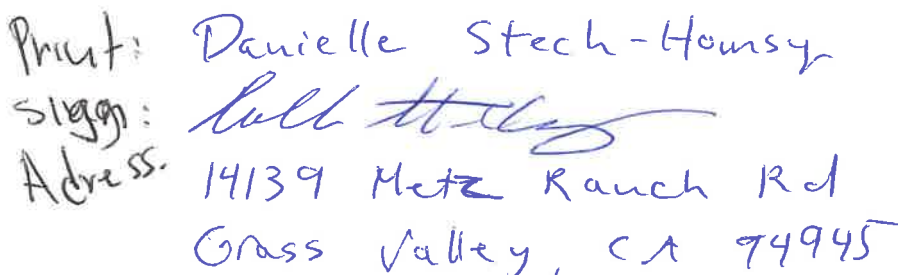 Print: Danielle Stech-Homsy
Sign:
Adress. 14139 Metz Ranch Rd
Grass Valley, CA 94945